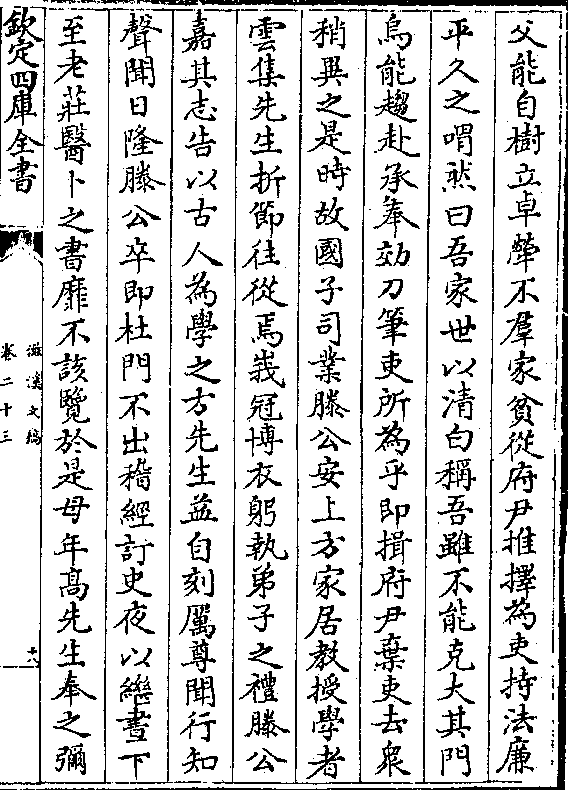 父能自樹立卓犖不羣家貧從府尹推擇為吏持法廉
平久之喟然曰吾家世以清白稱吾雖不能克大其門
烏能趨赴承奉効刀筆吏所為乎即揖府尹棄吏去衆
稍異之是時故國子司業滕公安上方家居教授學者
雲集先生折節往從焉峩冠博衣躬執弟子之禮滕公
嘉其志告以古人為學之方先生益自刻厲尊聞行知
聲聞日隆滕公卒即杜門不出稽經訂史夜以繼晝下
至老莊醫卜之書靡不該覽於是母年高先生奉之彌
欽定四庫全書
滋溪文稿
卷二十三
十八